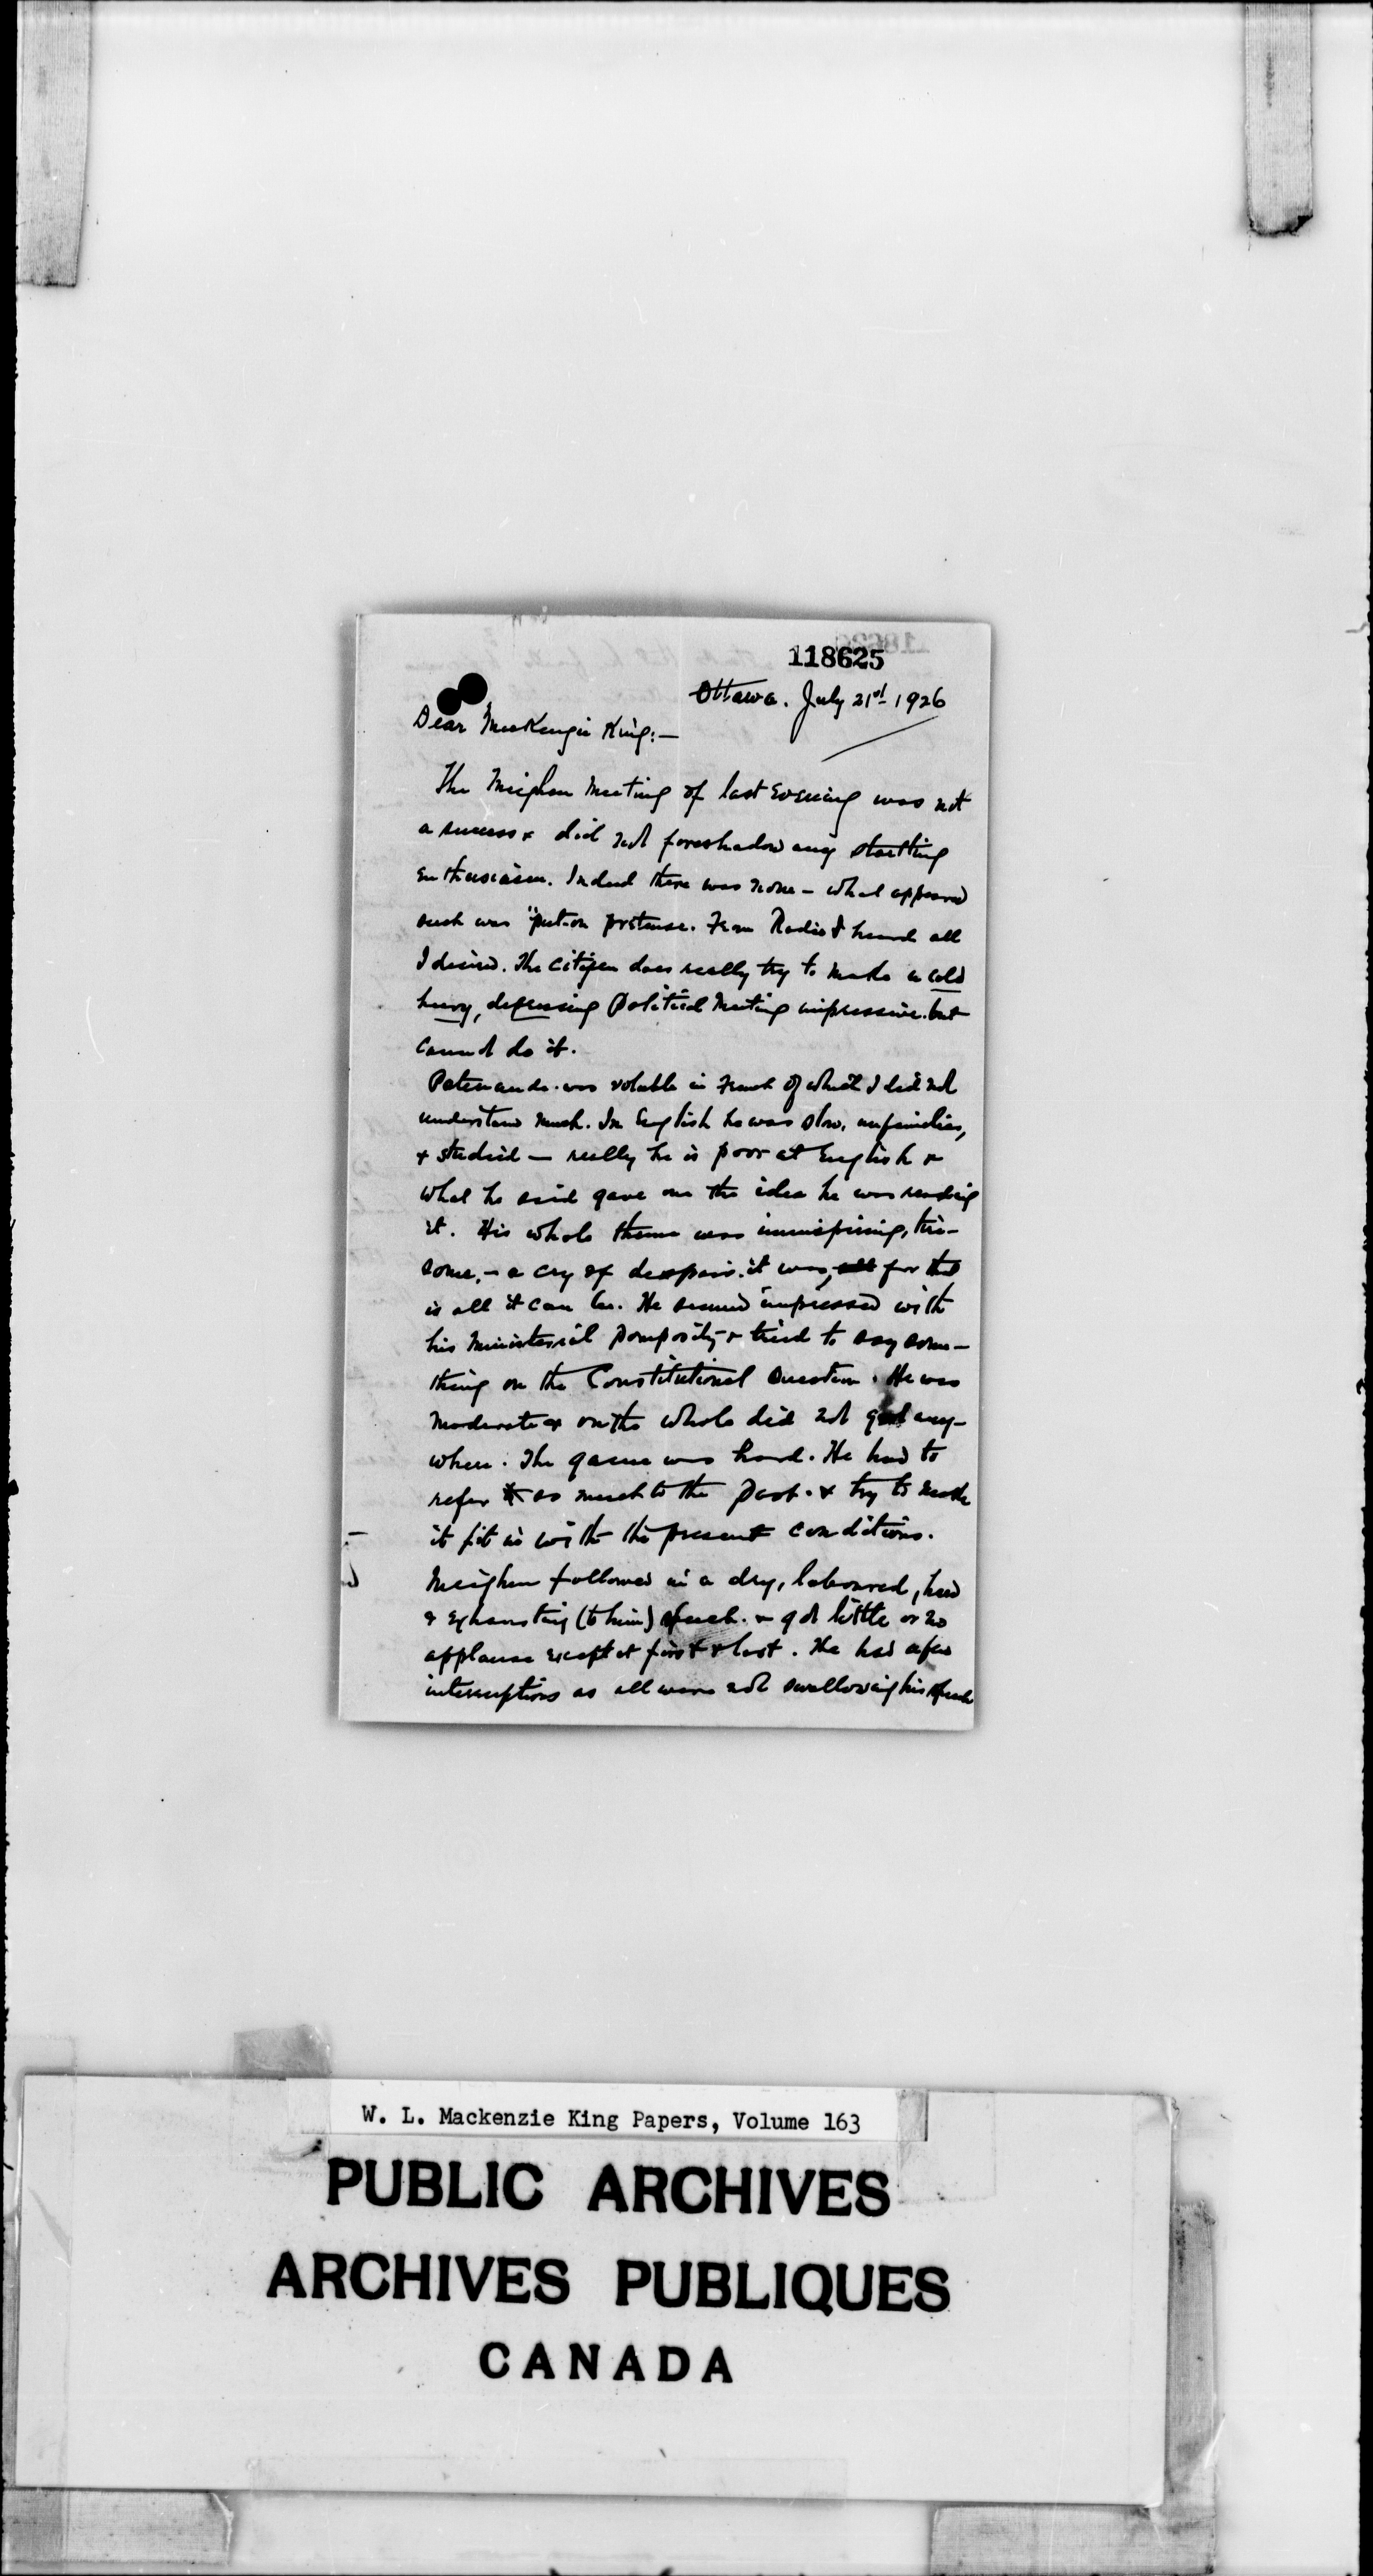 118625
Ottawa. July 21st 1926
Dear MacKenzie King:—
The Meighen Meeting of last Evening was not
a success & did not foreshadow any startling
Enthusiasm. Indeed there was none – what appeared
such was "put-on pretense. From Radio I heard all
I desired. The Citizen does really try to make a cold
heavy, depressing Political Meeting impressive. but
cannot do it.
Patenaude was voluble in French of which I did not
understand much. In English he was slow, unfamiliar,
& studied — really he is poor at English &
what he said gave one the idea he was reading
it. His whole theme was uninspiring, tire-
some, – a cry of despair. it was, for that
is all it can be. He seemed impressed with
his Ministerial pomposity & tried to say some-
thing on the Constitutional Question. He was
Moderate & on the whole did not get any-
where. The game was hard. He had to
refer as much to the past. & try to make
it fit in with the present conditions.
Meighen followed in a dry, laboured, hard
& exhausting (to him) speech. & got little or no
applause except at first & last. He had a few
interruptions as all were not swallowing his speech
W. L. Mackenzie King Papers, Volume 163
PUBLIC ARCHIVES
ARCHIVES PUBLIQUES
CANADA